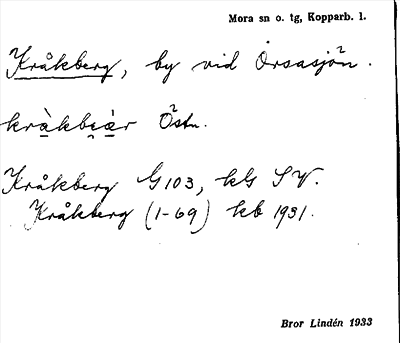 Mora sn o. tg, Kopparb. l.
Kråkberg, by vid Orsasjön.
kråkbeär Östn.
Kråkberg G103, kls SV.
Kråkberg (1-69) kb 1931.
Bror Lindén 1933